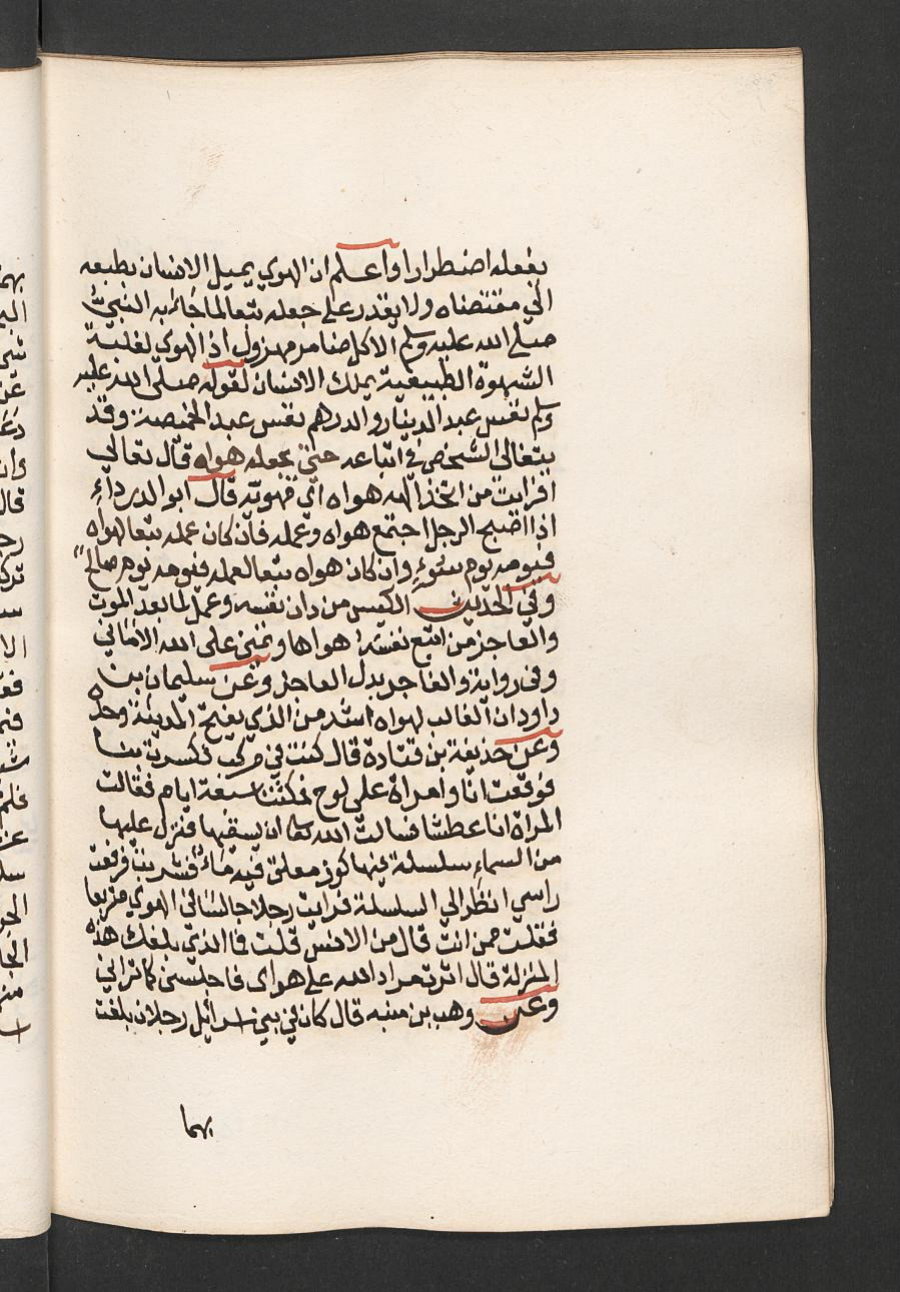 يفعله اضطرارا واعلم ان الهوي يميل الانسان بطبعه
الي مقتضاه ولا يقدر علي جعله تبعا لما جاء به النبي
صلي الله عليه وسلم الا كل ضامر مهزول اذ الهوي لغلبة
الشهوة الطبيعية يملك الانسان لقوله صلي الله عليه
وسلم تعس عبد الدينار والدرهم تعس عبد الخميصة وقد
يتغالي الشخص في اتباعه حتي يجعله هواه قال تعالي
افرايت من اتخذ الهه هواه اي مهويه قال ابو الدرداء
اذا اصبح الرجل اجتمع هواه وعمله فان كان عمله تبعا لهواه
فيومه يوم سوء وان كان هواه تبعا لعمله فيومه يوم صالح
وفي الحديث الكيس من دان نفسه وعمل لما بعد الموت
والعاجز من اتبع نفسه هواها وتمني علي الله الاماني
وفي رواية والفاجر بدل العاجز وعن سليمان بن
داود ان الغالب لهواه اشد من الذي يفتح المدينة وحده
وعن حذيفة بن قتادة قال كنت في مركب فكسرت بنا
فوقعت انا وامراة علي لوح فمكثنا سبعة ايام فقالت
المراة انا عطشا فسالت الله تعا ان يسقيها فنزل عليها
من السماء سلسلة فيها كوز معلق فيه ماء فشربت فرفعت
راسي انظر الي السلسلة فرايت رجلا جالسا في الهوي متربعا
فقلت ممن انت قال من الانس قلت فما الذي بلغك هذه
المنزلة قال اثرت مراد الله علي هواي فاجلسني كما تراني
وعن وهب بن منبه قال كان في بني اسرائيل رجلان بلغت
بهما